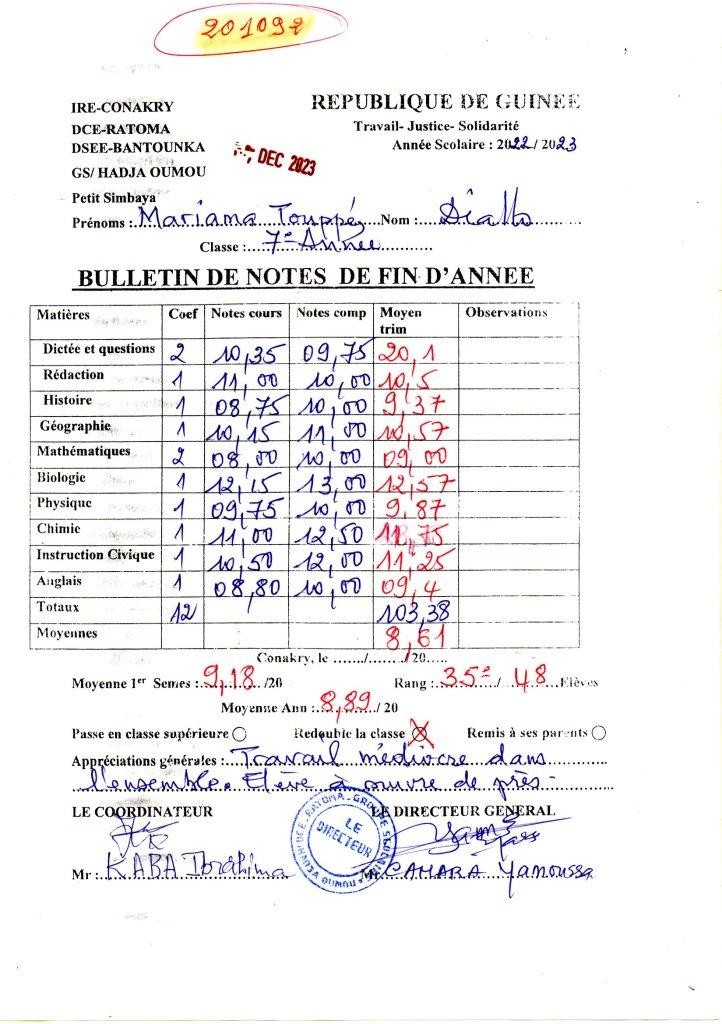 201092
IRE-CONAKRY
REPUBLIQUE DE GUINEE
DCE-RATOMA
Travail- Justice- Solidarité
DSEE-BANTOUNKA
Année Scolaire : 2022/ 2023
DEC 2023
GS/ HADJA OUMOU
Petit Simbaya
Prénoms : Mariama Touppé Nom : Diallo
Classe : 7e Année
BULLETIN DE NOTES DE FIN D'ANNEE
Matières Coef Notes cours Notes comp Moyen trim Observations
Dictée et questions 2 10,35 09,75 20,1
Rédaction 1 11,00 10,00 10,5
Histoire 1 08,75 10,00 9,37
Géographie 1 10,15 11,00 10,57
Mathématiques 2 08,00 10,00 09,00
Biologie 1 12,15 13,00 12,57
Physique 1 09,75 10,00 9,87
Chimie 1 11,00 12,50 11,75
Instruction Civique 1 10,50 12,00 11,25
Anglais 1 08,80 10,00 09,4
Totaux 12 103,38
Moyennes 8,61
Conakry, le ......./......./20.....
Moyenne 1er Semes : 9,18 /20 Rang : 35e / 48 Elèves
Moyenne Ann : 8,89 / 20
Passe en classe supérieure Redouble la classe Remis à ses parents
Appréciations générales : Travail médiocre dans
l'ensemble. Elève à suivre de près.
LE COORDINATEUR LE DIRECTEUR GENERAL
LE DIRECTEUR
Mr : KABA Ibrahima Mr CAMARA Yamoussa